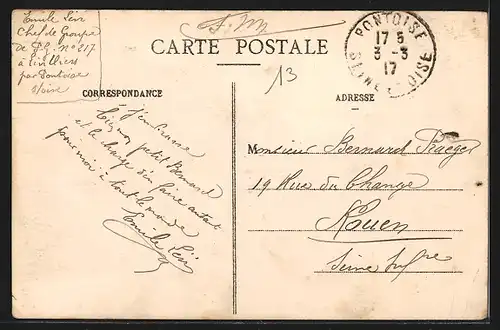 Emile Leir
Chef de Groupe
de P.G. No 217
à Livilliers
par Pontoise
S/oise
F. M
CARTE POSTALE
PONTOISE
17 5
3 -3
17
SEINE-ET-OISE
13
CORRESPONDANCE
ADRESSE
J'embrasse
mon petit Bernard
et le charge d'en faire autant
pour moi à tout le monde
Emile Leir
Monsieur Bernard Praeger
19 Rue du Change
Rouen
Seine Infre